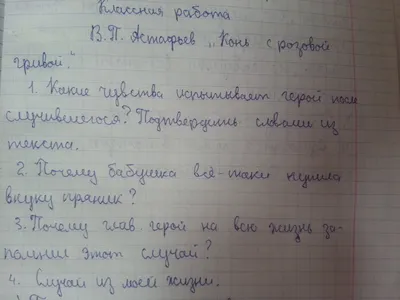 Классная работа
В.П. Астафьев „Конь с розовой
гривой."
1. Какие чувства испытывает герой после
случившегося? Подтвердить словами из
текста.
2. Почему бабушка всё-таки купила
внуку пряник?
3. Почему глав. герой на всю жизнь за-
помнил этот случай?
4. Случай из моей жизни.